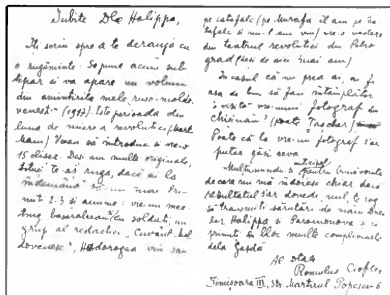 Iubite Dle Halippa,
Iți scriu spre a te deranja cu
o rugăminte. Se pune acum sub
tipar și va apare un volum
din amintirile mele ruso-moldo-
venești" (1917). Este perioada din
luna de mare a revoluției
Vreau să introduc și vreo
15 clișee. Deși am multe originale,
totuși te-aș ruga, dacă ai la
îndemână să-mi mai
2-3 și anume: vre-un mee-
ting basarabean, cu soldați, un
grup al redacției „Cuvânt mol-
dovenesc", Hodorogea
pe catafalc (pe Murafa îl am pe ca-
tafalc și nu-l am viu) vre-o vedere
din teatrul revoluției din Petro-
grad (deși de aici mai am)
În casul că nu prea ai, ar fi
asa de bun să faci întâmplător
o visită vre-unui fotograf din
Chișinău? (poate
Poate că la vre-un fotograf s'ar
putea găsi ceva.
Mulțumindu-ți anticipat pentru bunăvoința
de care nu mă îndoiesc chiar dacă
rezultatul s'ar dovedi nul, te rog
să transmiți salutări de
lor Halippa și
în bloc multe complimente
dela
Al Dtale
Romulus Cioflec
Timișoara III, Str. Martirul Popescu 6